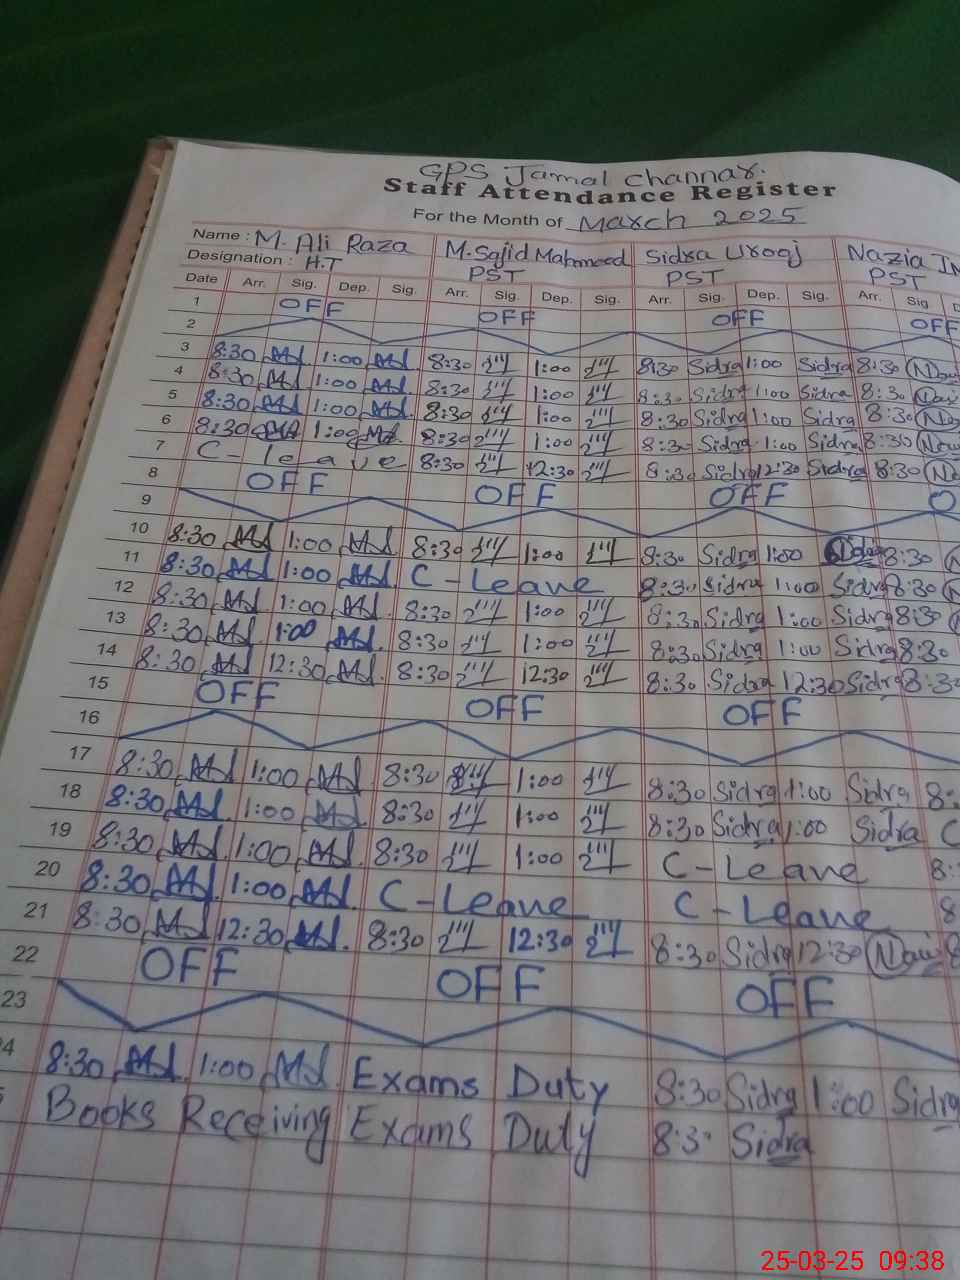 GPS Jamal Channar.
Staff Attendance Register
For the Month of March 2025
Name : M. Ali Raza M. Sajid Mahmood Sidra Urooj Nazia
Designation : H.T PST PST PST
Date Arr. Sig. Dep. Sig. Arr. Sig. Dep. Sig. Arr. Sig. Dep. Sig. Arr. Sig
1 OFF OFF OFF OFF
2
3 8:30 1:00 8:30 1:00 8:30 Sidra 1:00 Sidra 8:30
4 8:30 1:00 8:30 1:00 8:30 Sidra 1:00 Sidra 8:30
5 8:30 1:00 8:30 1:00 8:30 Sidra 1:00 Sidra 8:30
6 8:30 1:00 8:30 1:00 8:30 Sidra 1:00 Sidra 8:30
7 C - leave 8:30 12:30 8:30 Sidra 12:30 Sidra 8:30
8 OFF OFF OFF O
9
10 8:30 1:00 8:30 1:00 8:30 Sidra 1:00 8:30
11 8:30 1:00 C - Leave 8:30 Sidra 1:00 Sidra 8:30
12 8:30 1:00 8:30 1:00 8:30 Sidra 1:00 Sidra 8:30
13 8:30 1:00 8:30 1:00 8:30 Sidra 1:00 Sidra 8:30
14 8:30 12:30 8:30 12:30 8:30 Sidra 12:30 Sidra 8:30
15 OFF OFF OFF
16
17 8:30 1:00 8:30 1:00 8:30 Sidra 1:00 Sidra 8:
18 8:30 1:00 8:30 1:00 8:30 Sidra 1:00 Sidra C
19 8:30 1:00 8:30 1:00 C - Leave 8:
20 8:30 1:00 C - Leave C - Leave 8
21 8:30 12:30 8:30 12:30 8:30 Sidra 12:30 8
22 OFF OFF OFF
23
4 8:30 1:00 Exams Duty 8:30 Sidra 1:00 Sidra
5 Books Receiving Exams Duty 8:3 Sidra
25-03-25 09:38